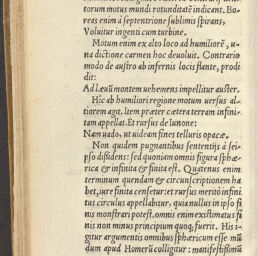 torum motus mundi rotunditatẽ indicant, Bo-
reas enim à septentrione sublimis spirans,
Voluitur ingenti cum turbine.
Motum enim ex alto loco ad humiliorẽ, u-
na dictione carmen hoc deuoluit. Contrario
modo de austro ab infernis locis flante, prodi
dit:
Ad læuũ montem uehemens impellitur auster.
Hîc ab humiliori regione motum uersus al-
tiorem agit. Item præter cætera terram infini-
tam appellat. Et rursus de Iunone:
Nam uado, ut uidram fines telluris opacæ.
Non quidem pugnantibus sententijs à sei-
pso dißidens: sed quoniam omnis figura sphæ-
rica & infinita & finita est. Quatenus enim
terminum quendam & circunscriptionem ha
bet, iure finita censetur: et rursus meritò infini
tus circulus appellabitur, qua nullus in ipso fi
nis monstrari potest. omnis enim existimatus fi
nis non minus principium quoq; fuerit. His i-
gitur argumentis omnibus sphæricum esse mũ
dum apud Homerũ colligitur: manifestißimũ